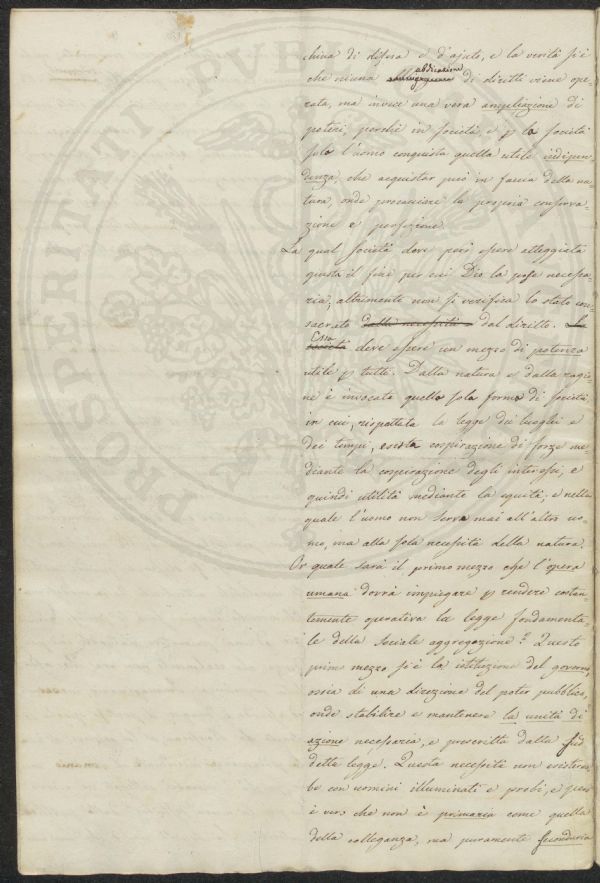 china di difesa e d'ajuto, e la verità si è
che niuna abdicazione di diritti viene ope-
rata, ma invece una vera ampliazione di
poteri, perchè in società, e p la società
sola l'uomo conquista quella utile indipen-
denza, che acquistar può in faccia della na-
tura, onde procacciare la propria conserva-
zione e perfezione.
La qual Società deve però essere atteggiata
giusta il fine per cui Dio la pose necessa-
ria, altrimente non si verifica lo stato con-
sacrato dalla necessità e dal diritto. La
società Essa deve essere un mezzo di potenza
utile p tutti. Dalla natura e dalla ragio-
ne è invocata quella sola forma di società
in cui, rispettata la legge dei luoghi e
dei tempi, esista cospirazione di forze me-
diante la cooperazione degli interessi, e
quindi utilità mediante la equità, e nella
quale l'uomo non serva mai all'altro uo-
mo, ma alla sola necessità della natura.
Or quale sarà il primo mezzo che l'opera
umana dovrà impiegare p rendere costan-
temente operativa la legge fondamenta-
le della sociale aggregazione? Questo
primo mezzo si è la istituzione del governo,
ossia di una direzione del poter pubblico,
onde stabilire e mantenere la unità di
azione necessaria, e prescritta dalla sud
detta legge. Questa necessità non esistereb-
be con uomini illuminati e probi, e però
è vero che non è primaria come quella
della colleganza, ma puramente secondaria